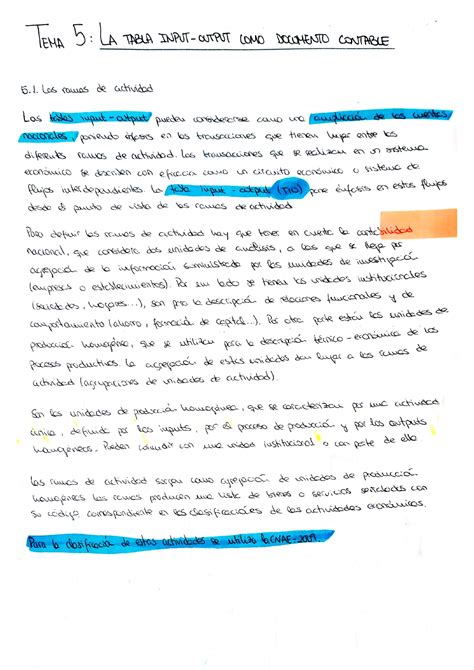 TEMA 5: LA TABLA INPUT-OUTPUT COMO DOCUMENTO CONTABLE
5.1. Las ramas de actividad
Las tablas input-output pueden considerarse como una ampliación de las cuentas
nacionales, poniendo énfasis en las transacciones que tienen lugar entre las
diferentes ramas de actividad. Las transacciones que se realizan en un sistema
económico se describen con eficacia como un circuito económico o sistema de
flujos interdependientes. La tabla input-output (TIO) pone énfasis en estos flujos
desde el punto de vista de las ramas de actividad
Para definir las ramas de actividad hay que tener en cuenta la contabilidad
nacional, que considera dos unidades de análisis, a las que se llega por
agregación de la información suministrada por las unidades de investigación
(empresas o establecimientos). Por un lado se tienen las unidades institucionales
(sociedades, hogares...), son para la descripción de relaciones funcionales y de
comportamiento (ahorro, formación de capital...). Por otra parte están las unidades de
producción homogénea, que se utilizan para la descripción técnico-económica de los
procesos productivos. La agregación de estas unidades dan lugar a las ramas de
actividad (agrupaciones de unidades de actividad).
Son las unidades de producción homogénea, que se caracterizan por una actividad
única, definida por los inputs, por el proceso de producción y por los outputs
homogéneos. Pueden coincidir con una unidad institucional o con parte de ella
Las ramas de actividad surgen como agregación de unidades de producción
homogénea las ramas producen una lista de bienes o servicios señalados con
su código correspondiente en las clasificaciones de las actividades económicas.
Para la clasificación de estas actividades se utiliza la CNAE-2009.